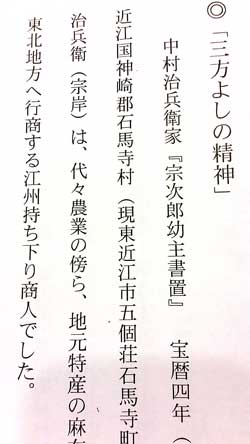 ◎「三方よしの精神」
中村治兵衛家『宗次郎幼主書置』 宝暦四年（
近江国神崎郡石馬寺村（現東近江市五個荘石馬寺町
治兵衛（宗岸）は、代々農業の傍ら、地元特産の麻布
東北地方へ行商する江州持ち下り商人でした。